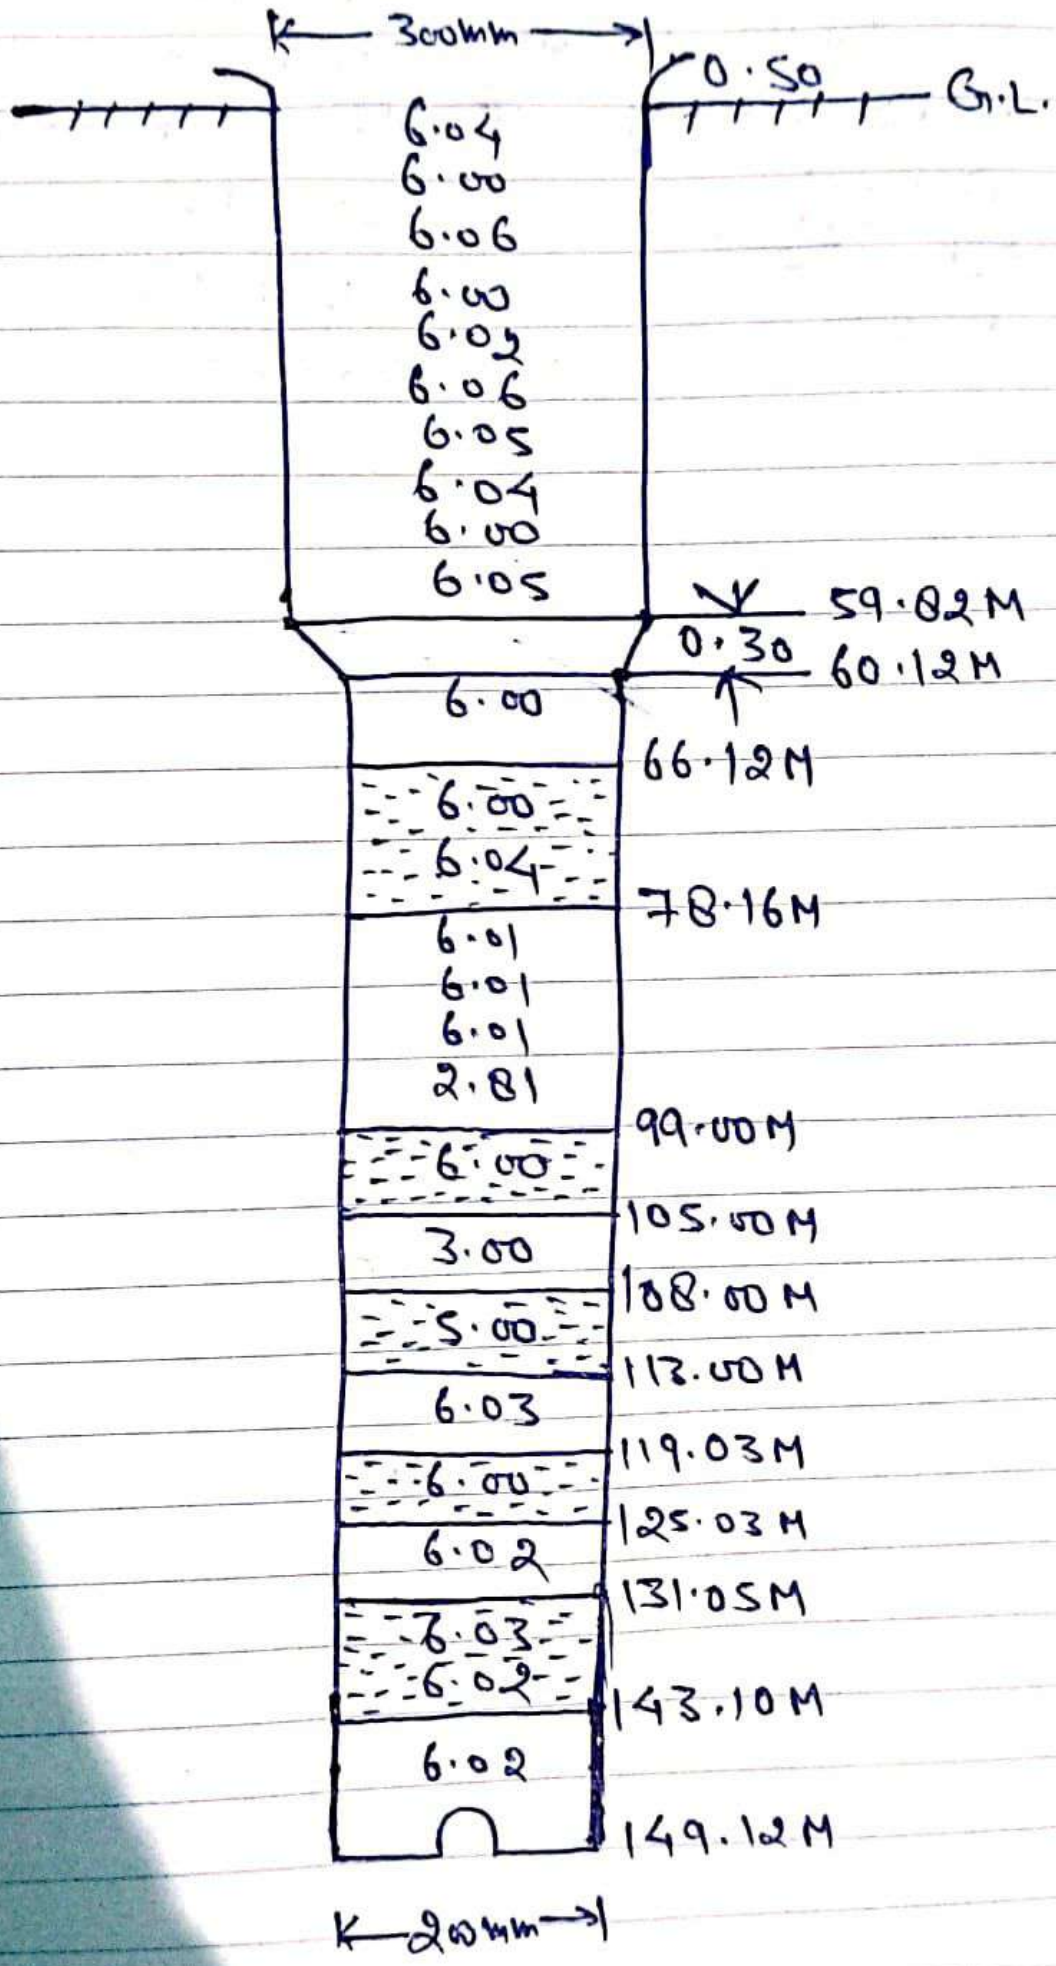 300mm
0.50
G.L.
6.04
6.00
6.06
6.00
6.02
6.06
6.05
6.04
6.00
6.05
59.82M
0.30
60.12M
6.00
66.12M
6.00
6.04
78.16M
6.01
6.01
6.01
2.81
99.00M
6.00
105.00M
3.00
108.00M
5.00
113.00M
6.03
119.03M
6.00
125.03M
6.02
131.05M
6.03
6.02
143.10M
6.02
149.12M
200mm